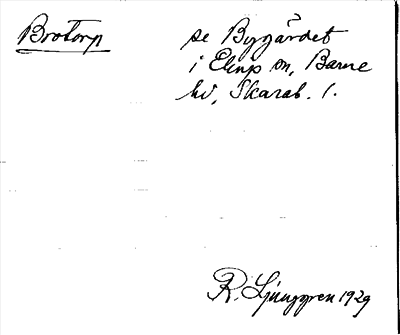 Brotorp
se Bygärdet
i Elinp sn, Barne
hd, Skarab. l.
R. Ljunggren 1929